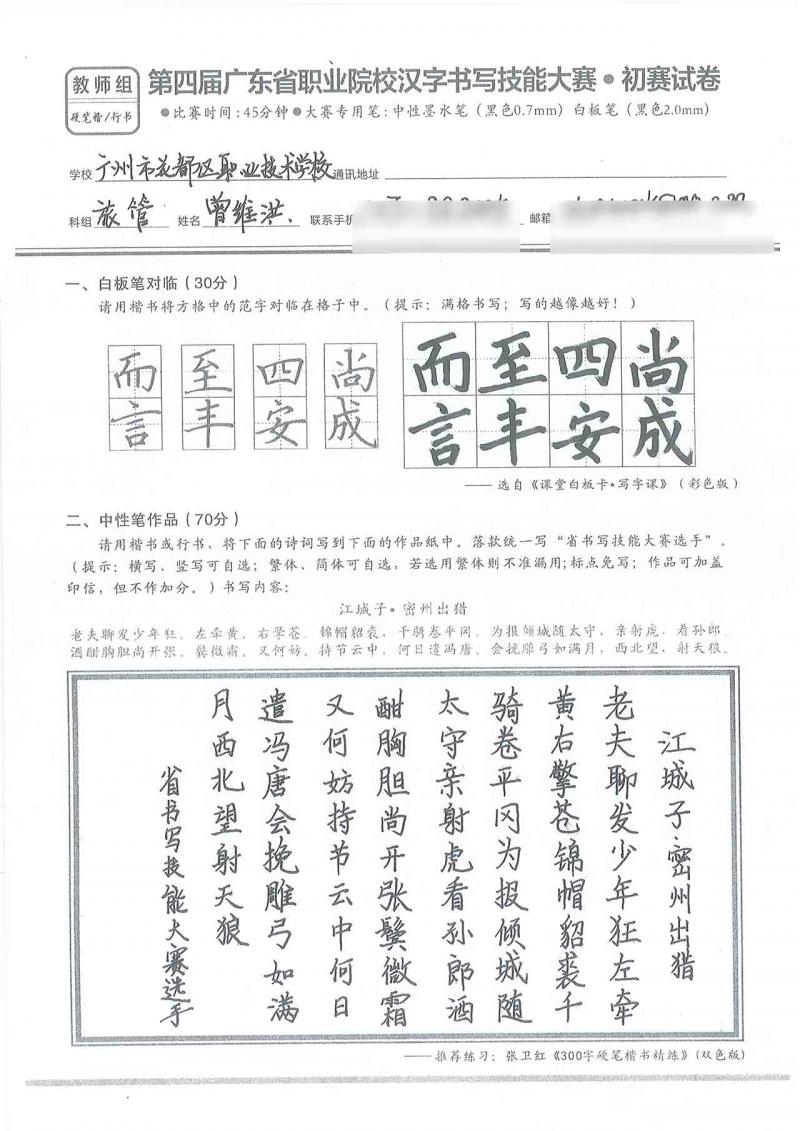 教师组
硬笔楷/行书
第四届广东省职业院校汉字书写技能大赛•初赛试卷
●比赛时间:45分钟●大赛专用笔:中性墨水笔（黑色0.7mm）白板笔（黑色2.0mm）
学校 广州市花都区职业技术学校 通讯地址
科组 旅管 姓名 曾维洪 联系手机 邮箱
一、白板笔对临（30分）
请用楷书将方格中的范字对临在格子中。（提示：满格书写；写的越像越好！）
而 至 四 尚 而至四尚
言 丰 安 成 言丰安成
——选自《课堂白板卡•写字课》（彩色版）
二、中性笔作品（70分）
请用楷书或行书、将下面的诗词写到下面的作品纸中。落款统一写“省书写技能大赛选手”。
（提示：横写、竖写可自选；繁体、简体可自选，若选用繁体则不准漏用;标点免写；作品可加盖
印信，但不作加分。）书写内容：
江城子•密州出猎
老夫聊发少年狂，左牵黄，右擎苍，锦帽貂裘，千骑卷平冈。为报倾城随太守，亲射虎，看孙郎。
酒酣胸胆尚开张。鬓微霜，又何妨。持节云中，何日遣冯唐。会挽雕弓如满月，西北望，射天狼。
江城子·密州出猎
老夫聊发少年狂左牵
黄右擎苍锦帽貂裘千
骑卷平冈为报倾城随
太守亲射虎看孙郎酒
酣胸胆尚开张鬓微霜
又何妨持节云中何日
遣冯唐会挽雕弓如满
月西北望射天狼
省书写技能大赛选手
——推荐练习：张卫红《300字硬笔楷书精练》(双色版)